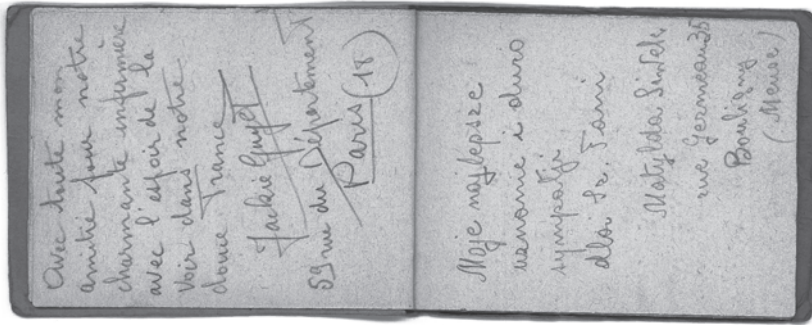 Avec toute mon
amitié pour notre
charmante infirmière
avec l'espoir de la
voir dans notre
douce France
Jackie Guyot
59 rue du Département
Paris (18)
Moje najlepsze
uznanie i duzo
sympatji
dla Sz. Pani
Matylda
rue Germeau 35
Bouligny
(Meuse)